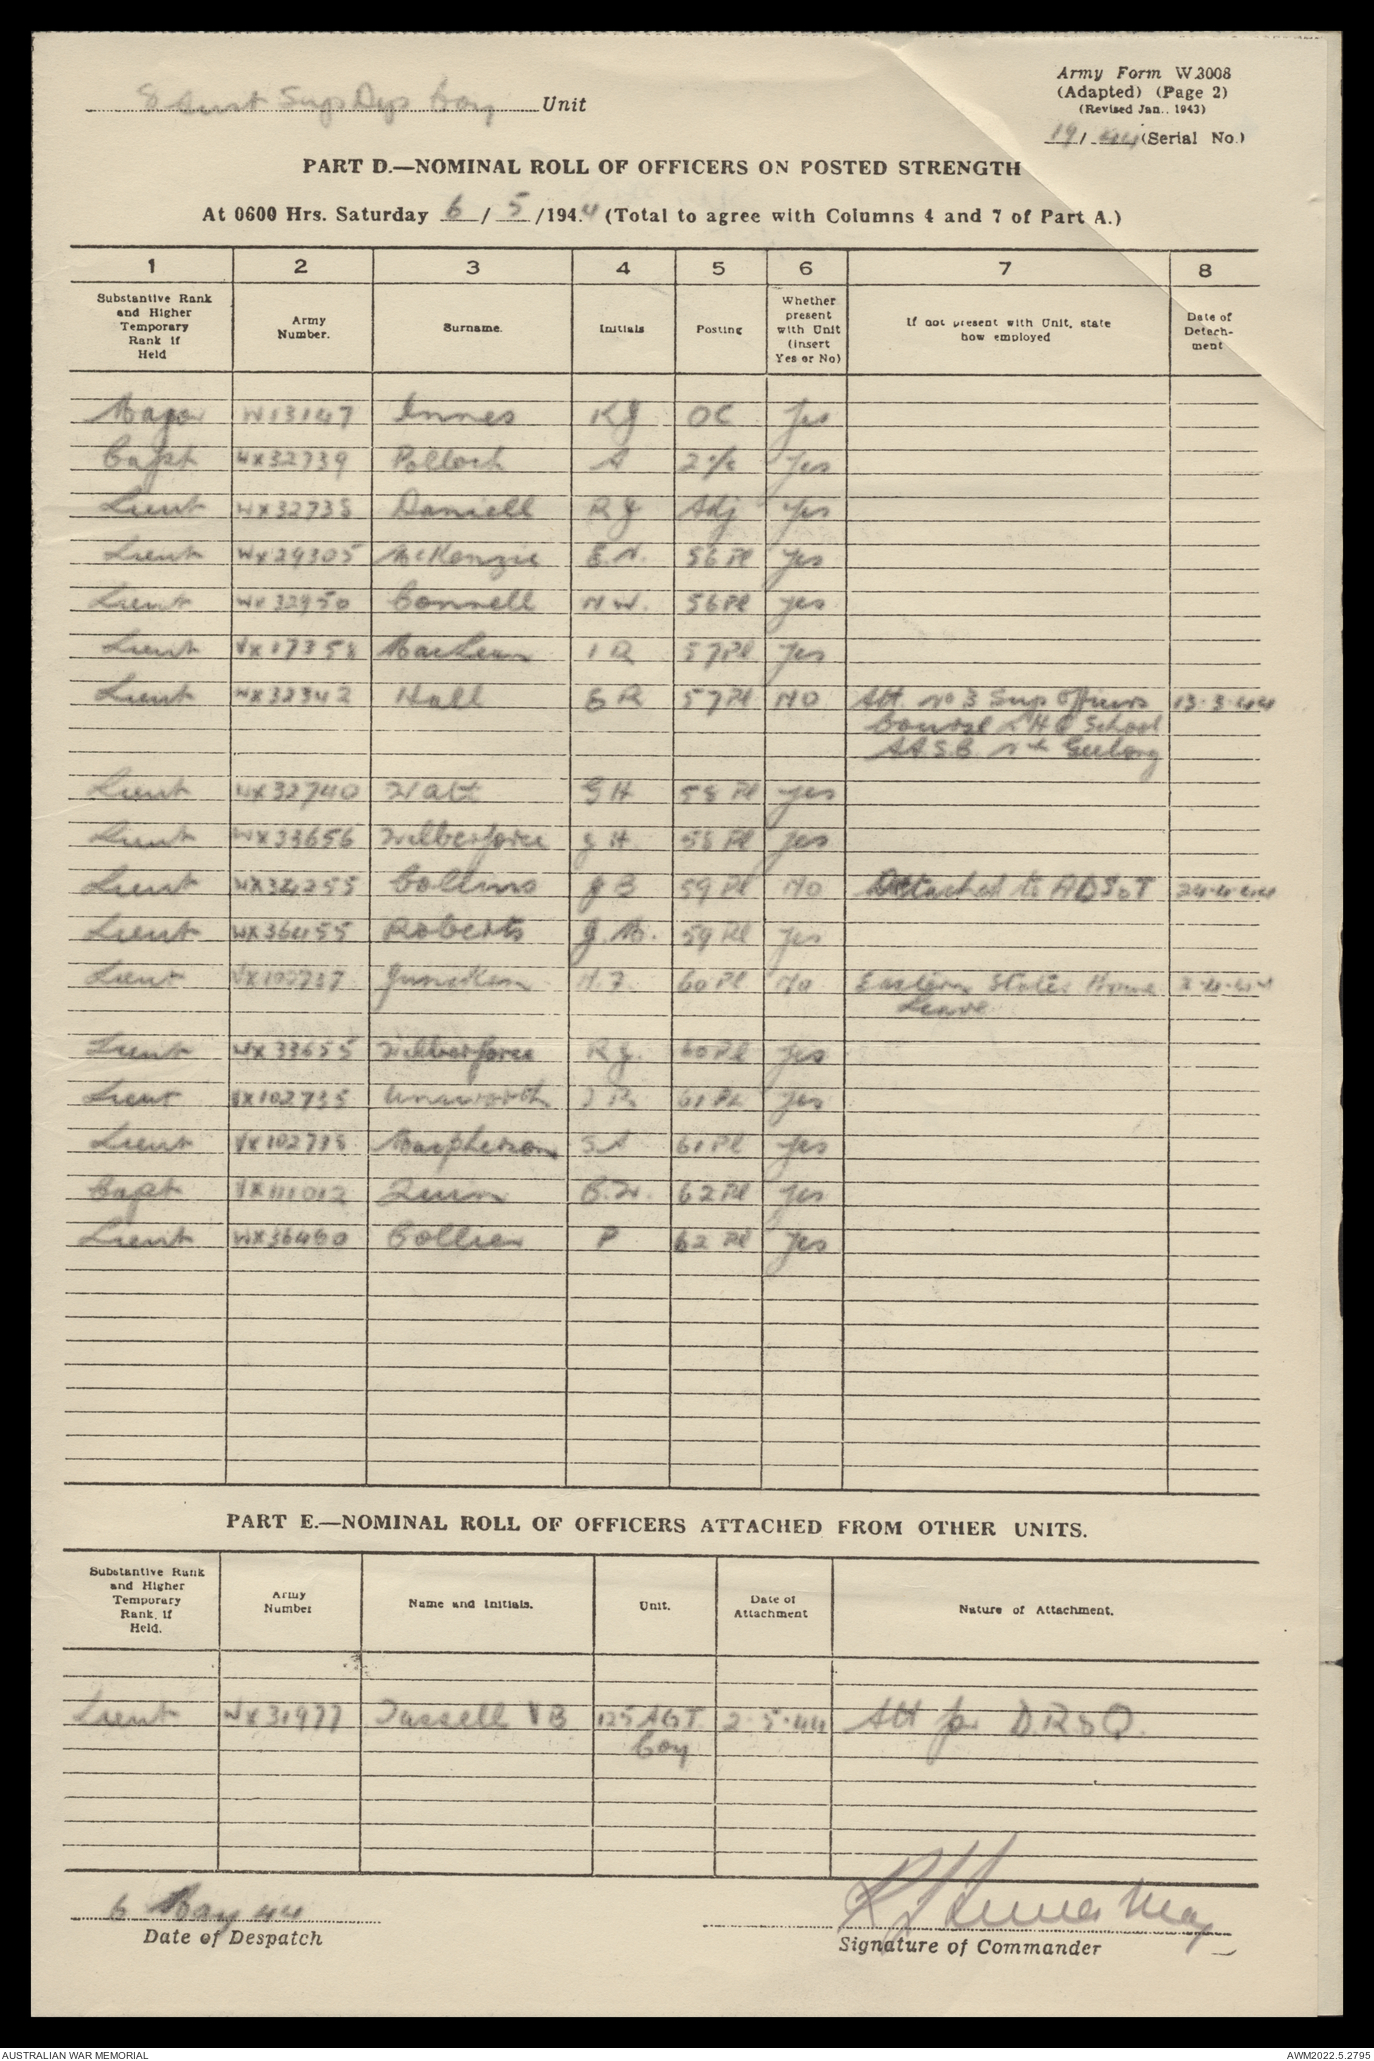 8 Aust Sup Dep Coy Unit
Army Form W.3008
(Adapted) (Page 2)
(Revised Jan., 1943)
19/44 (Serial No.)
PART D.—NOMINAL ROLL OF OFFICERS ON POSTED STRENGTH
At 0600 Hrs. Saturday 6/5/1944 (Total to agree with Columns 4 and 7 of Part A.)
1 2 3 4 5 6 7 8
Substantive Rank and Higher Temporary Rank if Held Army Number. Surname. Initials Posting Whether present with Unit (insert Yes or No) If not present with Unit, state how employed Date of Detachment
Major W13147 Innes KJ OC Yes
Capt WX32739 Pollock A 2i/c Yes
Lieut WX32738 Daniell RJ Adj Yes
Lieut WX29305 McKenzie E.N. 56 Pl Yes
Lieut WX32950 Connell NW. 56 Pl Yes
Lieut VX17358 MacLean IR 57 Pl Yes
Lieut WX32342 Hall ER 57 Pl NO Att. No 3 Sup Officers 13.3.44
Course LHQ School
AASC Nth Geelong
Lieut WX32740 Watt GH 58 Pl Yes
Lieut WX33656 Wilberforce JH. 58 Pl Yes
Lieut WX34255 Collins JB 59 Pl No Attached to ADSoT 24.4.44
Lieut WX36455 Roberts J.M. 59 Pl Yes
Lieut VX102737 Junciken N.F. 60 Pl No Eastern States Home
Leave
Lieut WX33655 Wilberforce RJ. 60 Pl Yes
Lieut VX102735 Unsworth 61 Pl Yes
Lieut VX102738 Macpherson SA 61 Pl Yes
Capt VX111012 Quinn B.W. 62 Pl Yes
Lieut WX36460 Collier P 62 Pl Yes
PART E.—NOMINAL ROLL OF OFFICERS ATTACHED FROM OTHER UNITS.
Substantive Rank and Higher Temporary Rank, if Held. Army Number Name and Initials. Unit. Date of Attachment Nature of Attachment.
Lieut WX31977 Tassell VB 125 AGT 2.5.44 Att for D.R.&Q.
Coy
6 May 44
Date of Despatch
KJ Innes Maj
Signature of Commander
AUSTRALIAN WAR MEMORIAL
AWM2022.5.2795